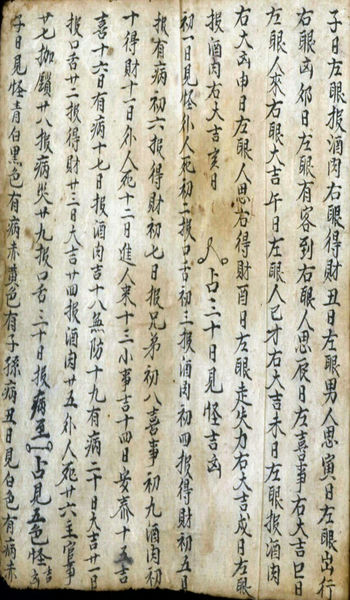 子日左眼报酒肉右眼报財丑日左眼男人思寅日左眼出行
右眼凶卯日左眼有客到右眼人思辰日左喜事右大吉巳日
左眼人来右眼大吉午日左眼人己才右大吉未日左眼报酒肉
右大凶申日左眼人思右得財酉日左眼走失力右大吉戍日左眼
报酒肉右大吉亥日 人占三十日見怪吉凶
初一日見怪外人死初二报口舌初三报酒肉初四报得財初五日
报有病初六报得財初七日报兄弟初八喜事初九酒肉初
十得財十一日外人死十二日進人来十三小事吉十四日安泰十五吉
喜十六日有病十七日报酒肉吉十八無防十九有病二十日大吉廿一日
报口舌廿二报得財廿三日大吉廿四报酒肉廿五外人死廿六主官事
廿七枷鎖廿八报病災廿九报口舌三十日报病至占見五色怪吉
子日見怪青白黑色有病赤黄色有子孫病丑日見白色有病赤